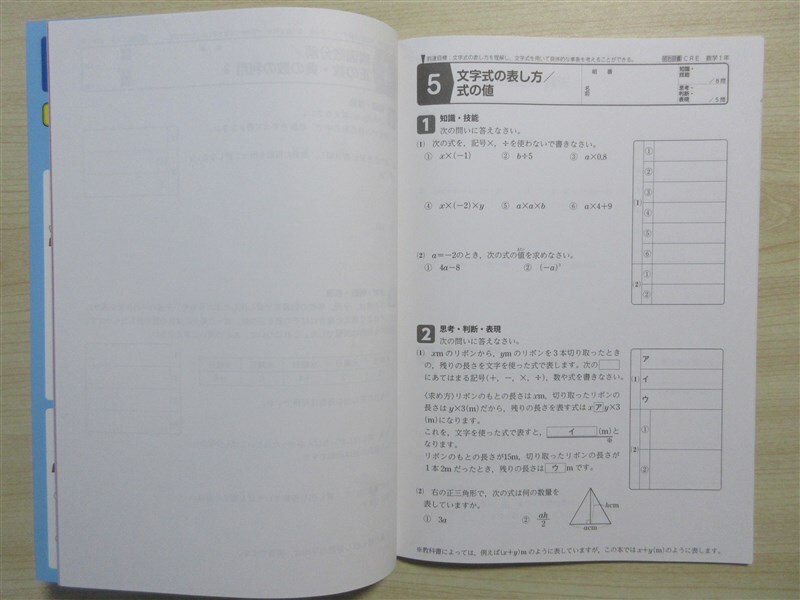 到達目標:文字式の表し方を理解し、文字式を用いて具体的な事象を考えることができる。
CRE 数学1年
5
文字式の表し方/
式の値
組 番
名前
知識・
技能
/8問
思考・
判断・
表現
/5問
1 知識・技能
次の問いに答えなさい。
(1) 次の式を、記号×、÷を使わないで書きなさい。
① x×(−1) ② b÷5 ③ a×0.8
④ x×(−2)×y ⑤ a×a×b ⑥ a×4+9
(2) a=−2のとき、次の式の値を求めなさい。
① 4a−8 ②
(1)
①
②
③
④
⑤
⑥
(2)
①
②
2 思考・判断・表現
次の問いに答えなさい。
(1) xmのリボンから、ymのリボンを3本切り取ったとき
の、残りの長さを文字を使った式で表します。次の
にあてはまる記号(+、−、×、÷)、数や式を書きなさい。
(求め方) リボンのもとの長さはxm、切り取ったリボンの
長さはy×3(m)だから、残りの長さを表す式はxアy×3
(m)になります。
これを、文字を使った式で表すと、イ(m)と
※
なります。
リボンのもとの長さが15m、切り取ったリボンの長さが
1本2mだったとき、残りの長さはウmです。
(2) 右の正三角形で、次の式は何の数量を
表していますか。
① 3a ② ah/2
hcm
acm
(1)
ア
イ
ウ
(2)
①
②
※教科書によっては、例えば(x+y)mのように表していますが、この本ではx+y(m)のように表します。